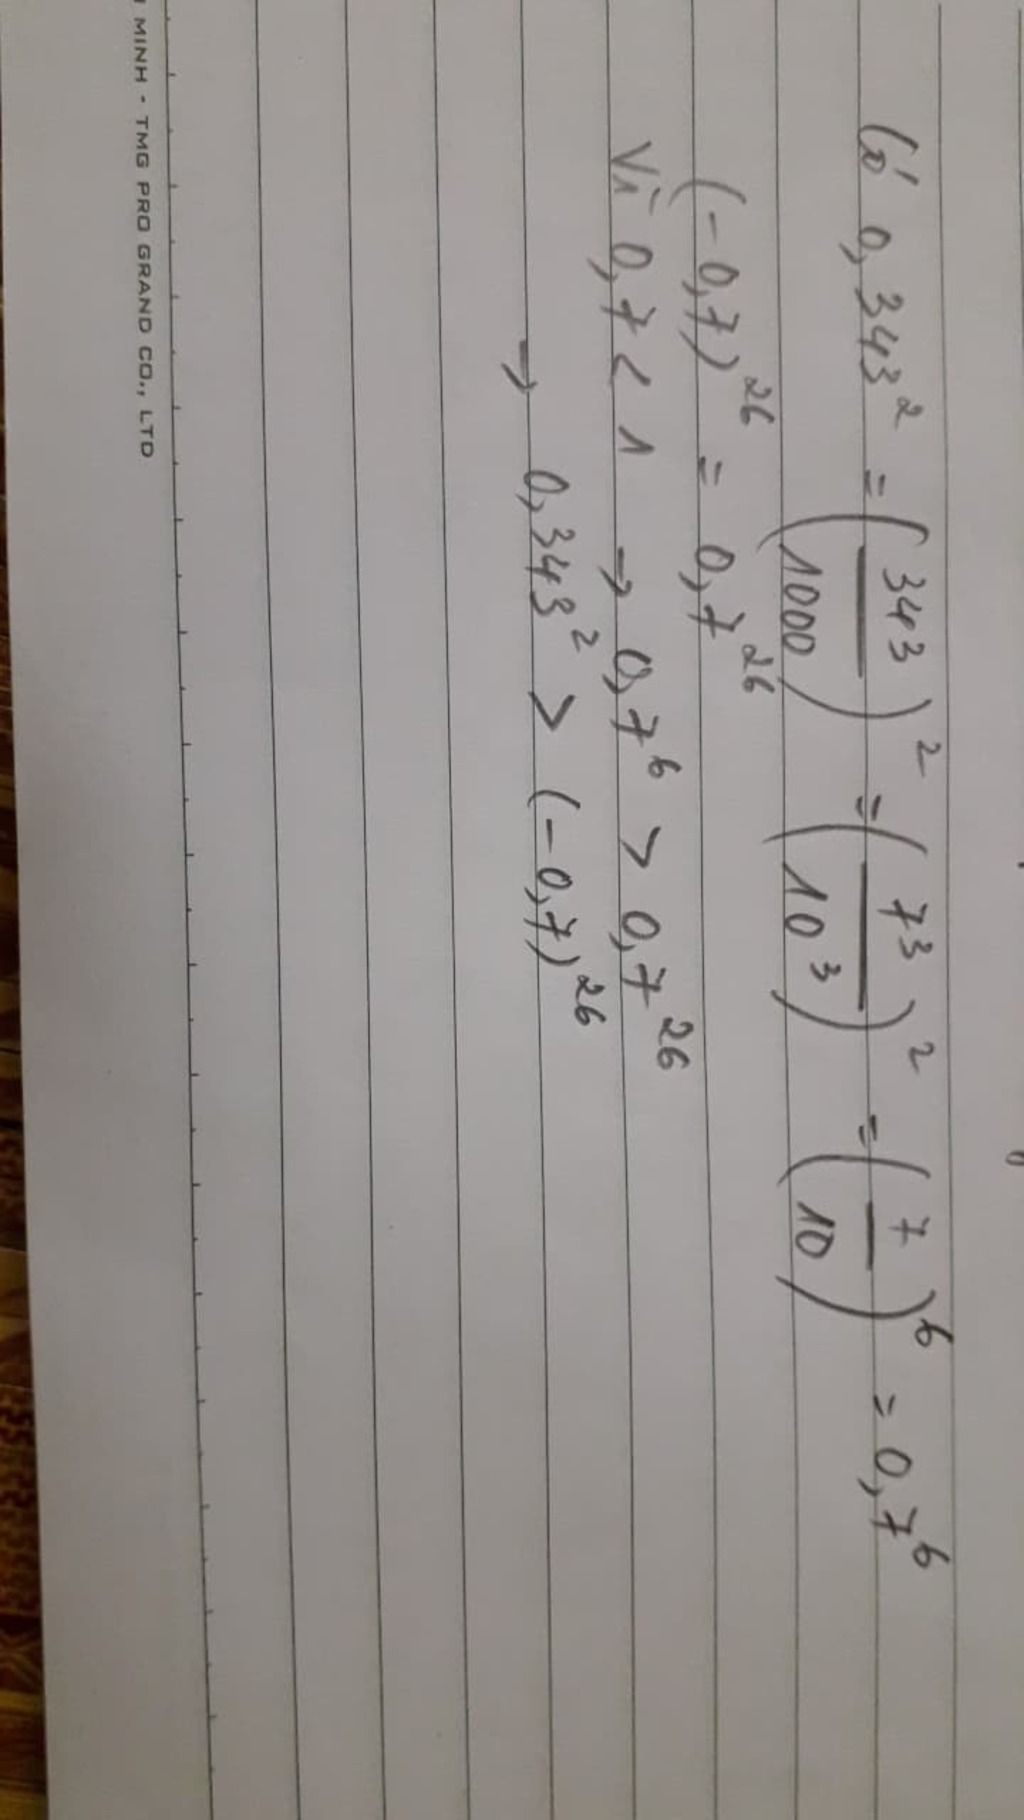 Có 0,343² = (343/1000)² = (7³/10³)² = (7/10)⁶ = 0,7⁶
(-0,7)²⁶ = 0,7²⁶
Vì 0,7 < 1 → 0,7⁶ > 0,7²⁶
→ 0,343² > (-0,7)²⁶
MINH - TMG PRO GRAND CO., LTD